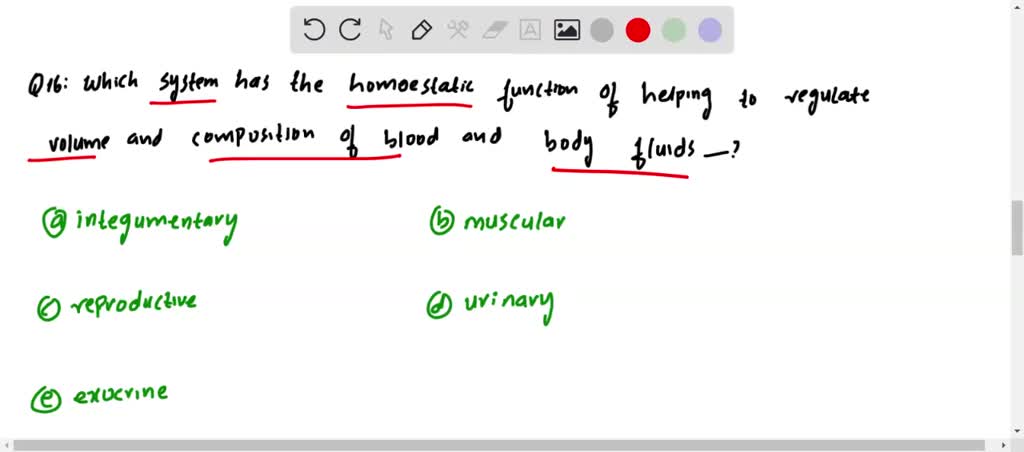 Q16: Which system has the homoestatic function of helping to regulate
volume and composition of blood and body fluids —?
ⓐ integumentary ⓑ muscular
ⓒ reproductive ⓓ urinary
ⓔ exocrine